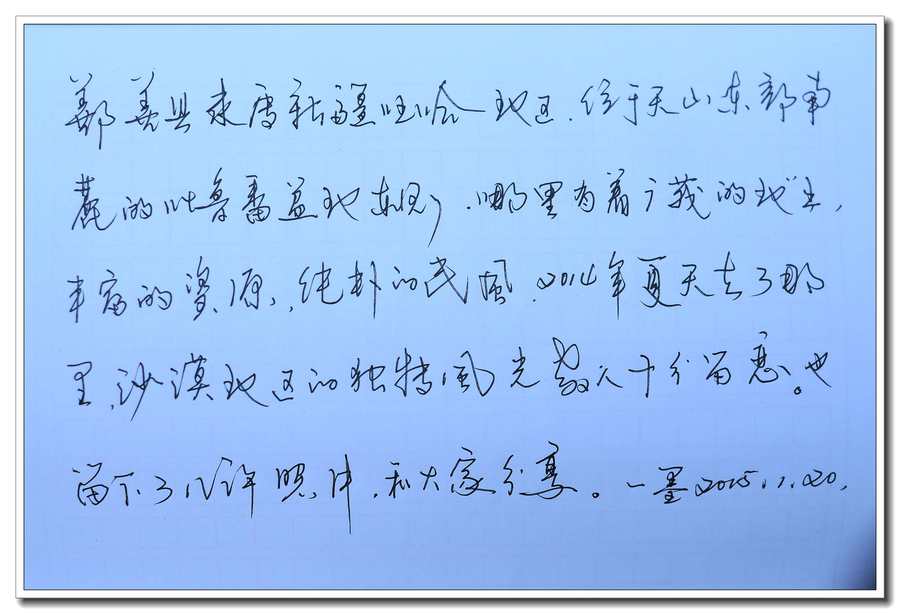 鄯善县隶属新疆吐哈地区.位于天山东部南
麓的吐鲁番盆地东侧.哪里有着广袤的地土,
丰富的资源,纯朴的民風.2014年夏天去了那
里,沙漠地区的独特風光教人十分留恋。也
留下了几许照片.和大家分享。一墨2015.1.20.